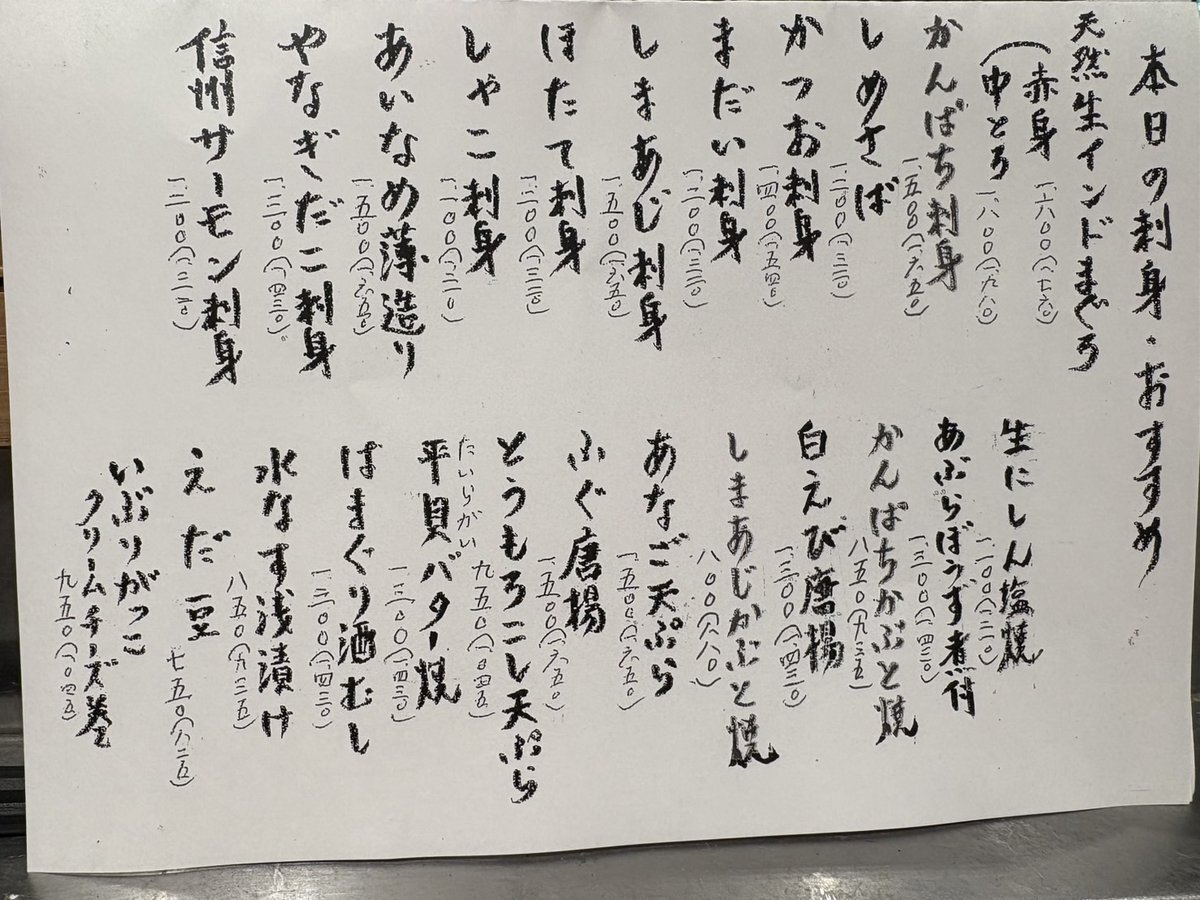 本日の刺身・おすすめ
天然生インドまぐろ
赤身 一、六〇〇(一、七六〇)
中とろ 一、八〇〇(一、九八〇)
かんぱち刺身 一、五〇〇(一、六五〇)
しめさば 一、二〇〇(一、三二〇)
かつお刺身 一、四〇〇(一、五四〇)
まだい刺身 一、二〇〇(一、三二〇)
しまあじ刺身 一、五〇〇(一、六五〇)
ほたて刺身 一、二〇〇(一、三二〇)
しゃこ刺身 一、一〇〇(一、二一〇)
あいなめ薄造り 一、五〇〇(一、六五〇)
やなぎだこ刺身 一、三〇〇(一、四三〇)
信州サーモン刺身 一、二〇〇(一、三二〇)
生にしん塩焼 一、一〇〇(一、二一〇)
あぶらぼうず煮付 一、三〇〇(一、四三〇)
かんぱちかぶと焼 八五〇(九三五)
白えび唐揚 一、三〇〇(一、四三〇)
しまあじかぶと焼 八〇〇(八八〇)
あなご天ぷら 一、五〇〇(一、六五〇)
ふぐ唐揚 一、五〇〇(一、六五〇)
とうもろこし天ぷら 九五〇(一、〇四五)
たいらがい
平貝バター焼 一、三〇〇(一、四三〇)
はまぐり酒むし 一、三〇〇(一、四三〇)
水なす浅漬け 八五〇(九三五)
えだ豆 七五〇(八二五)
いぶりがっこ
クリームチーズ巻 九五〇(一、〇四五)